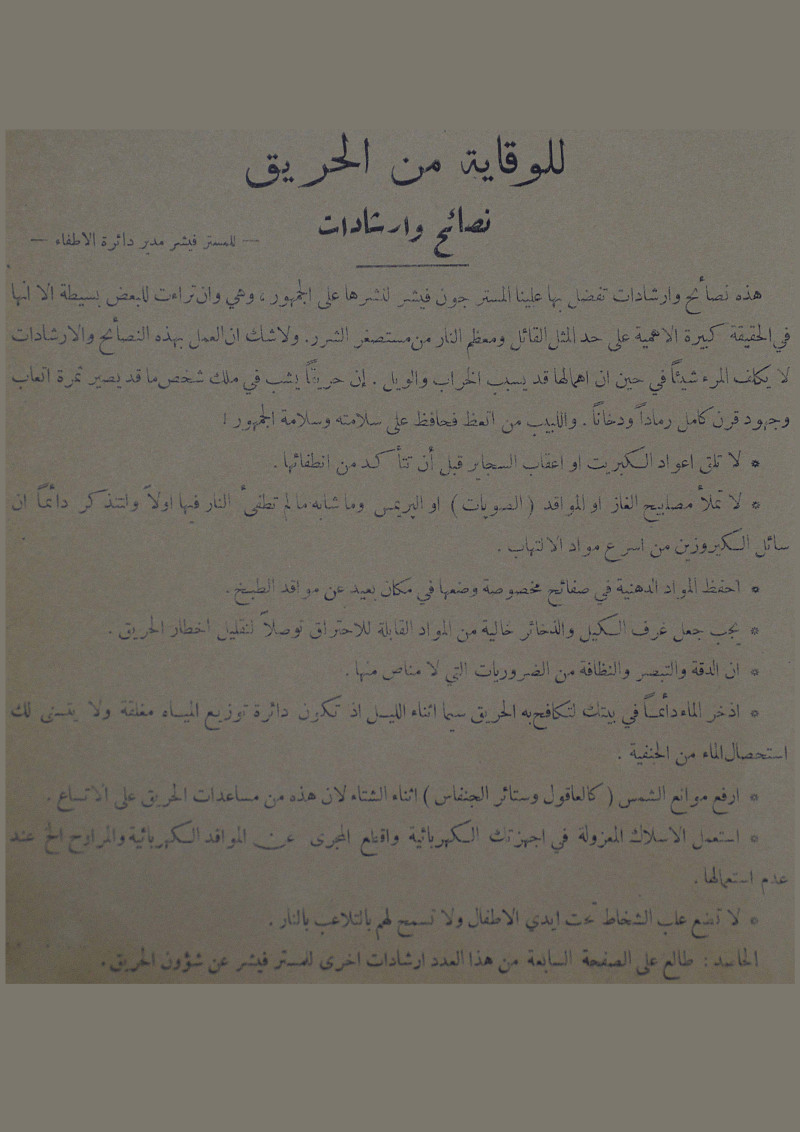 للوقاية من الحريق
نصائح وارشادات
— للمستر فيشر مدير دائرة الاطفاء —
هذه نصائح وارشادات تفضل بها علينا المستر جون فيشر لنشرها على الجمهور ، وهي وان تراءت للبعض بسيطة الا انها
في الحقيقة كبيرة الاهمية على حد المثل القائل ومعظم النار من مستصغر الشرر. ولا شك ان العمل بهذه النصائح والارشادات
لا يكلف المرء شيئاً في حين ان اهمالها قد يسبب الخراب والويل . إن حريقاً يشب في ملك شخص ما قد يصير ثمرة اتعاب
وجهود قرن كامل رماداً ودخاناً . واللبيب من اتعظ فحافظ على سلامته وسلامة الجمهور !
* لا تلق اعواد الكبريت او اعقاب السجاير قبل أن تتأكد من انطفائها .
* لا تملأ مصابيح الغاز او المواقد ( الصوبات ) او البريمس وما شابه ما لم تطفئ النار فيها اولاً ولتتذكر دائماً ان
سائل الكيروزين من اسرع مواد الالتهاب .
* احفظ المواد الدهنية في صفائح مخصوصة وضعها في مكان بعيد عن مواقد الطبخ .
* يجب جعل غرف الكيل والذخائر خالية من المواد القابلة للاحتراق توصلاً لتقليل اخطار الحريق .
* ان الدقة والتبصر والنظافة من الضروريات التي لا مناص منها .
* اذخر الماء دائماً في بيتك لتكافح به الحريق سيما اثناء الليل اذ تكون دائرة توزيع المياه مغلقة ولا يتسنى لك
استحصال الماء من الحنفية .
* ارفع موانع الشمس ( كالعاقول وستائر الجنفاس ) اثناء الشتاء لان هذه من مساعدات الحريق على الاتساع .
* استعمل الاسلاك المعزولة في اجهزتك الكهربائية واقطع المجرى عن المواقد الكهربائية والمراوح الخ عند
عدم استعمالها .
* لا تضع علب الشخاط تحت ايدي الاطفال ولا تسمح لهم بالتلاعب بالنار .
: طالع على الصفحة السابعة من هذا العدد ارشادات اخرى للمستر فيشر عن شؤون الحريق .